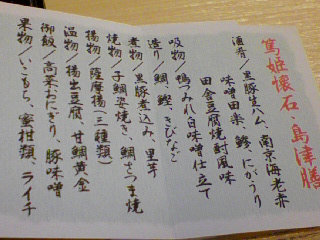 篤姫懐石・島津膳
酒肴/黒豚生ハム、南京海老赤
味噌田楽、鯵にがうり
田舎豆腐焼酎風味
吸物/鴨つみれ白味噌仕立て
造り/鯛、鰹、きびなご
煮物/黒豚煮込み 里芋
焼物/子鯛姿焼き、鯛さつま焼
揚物/薩摩揚(三種類)
温物/揚出豆腐、甘鯛黄金
御飯/高菜おにぎり、豚味噌
果物/いこもち、蜜柑類、ライチ